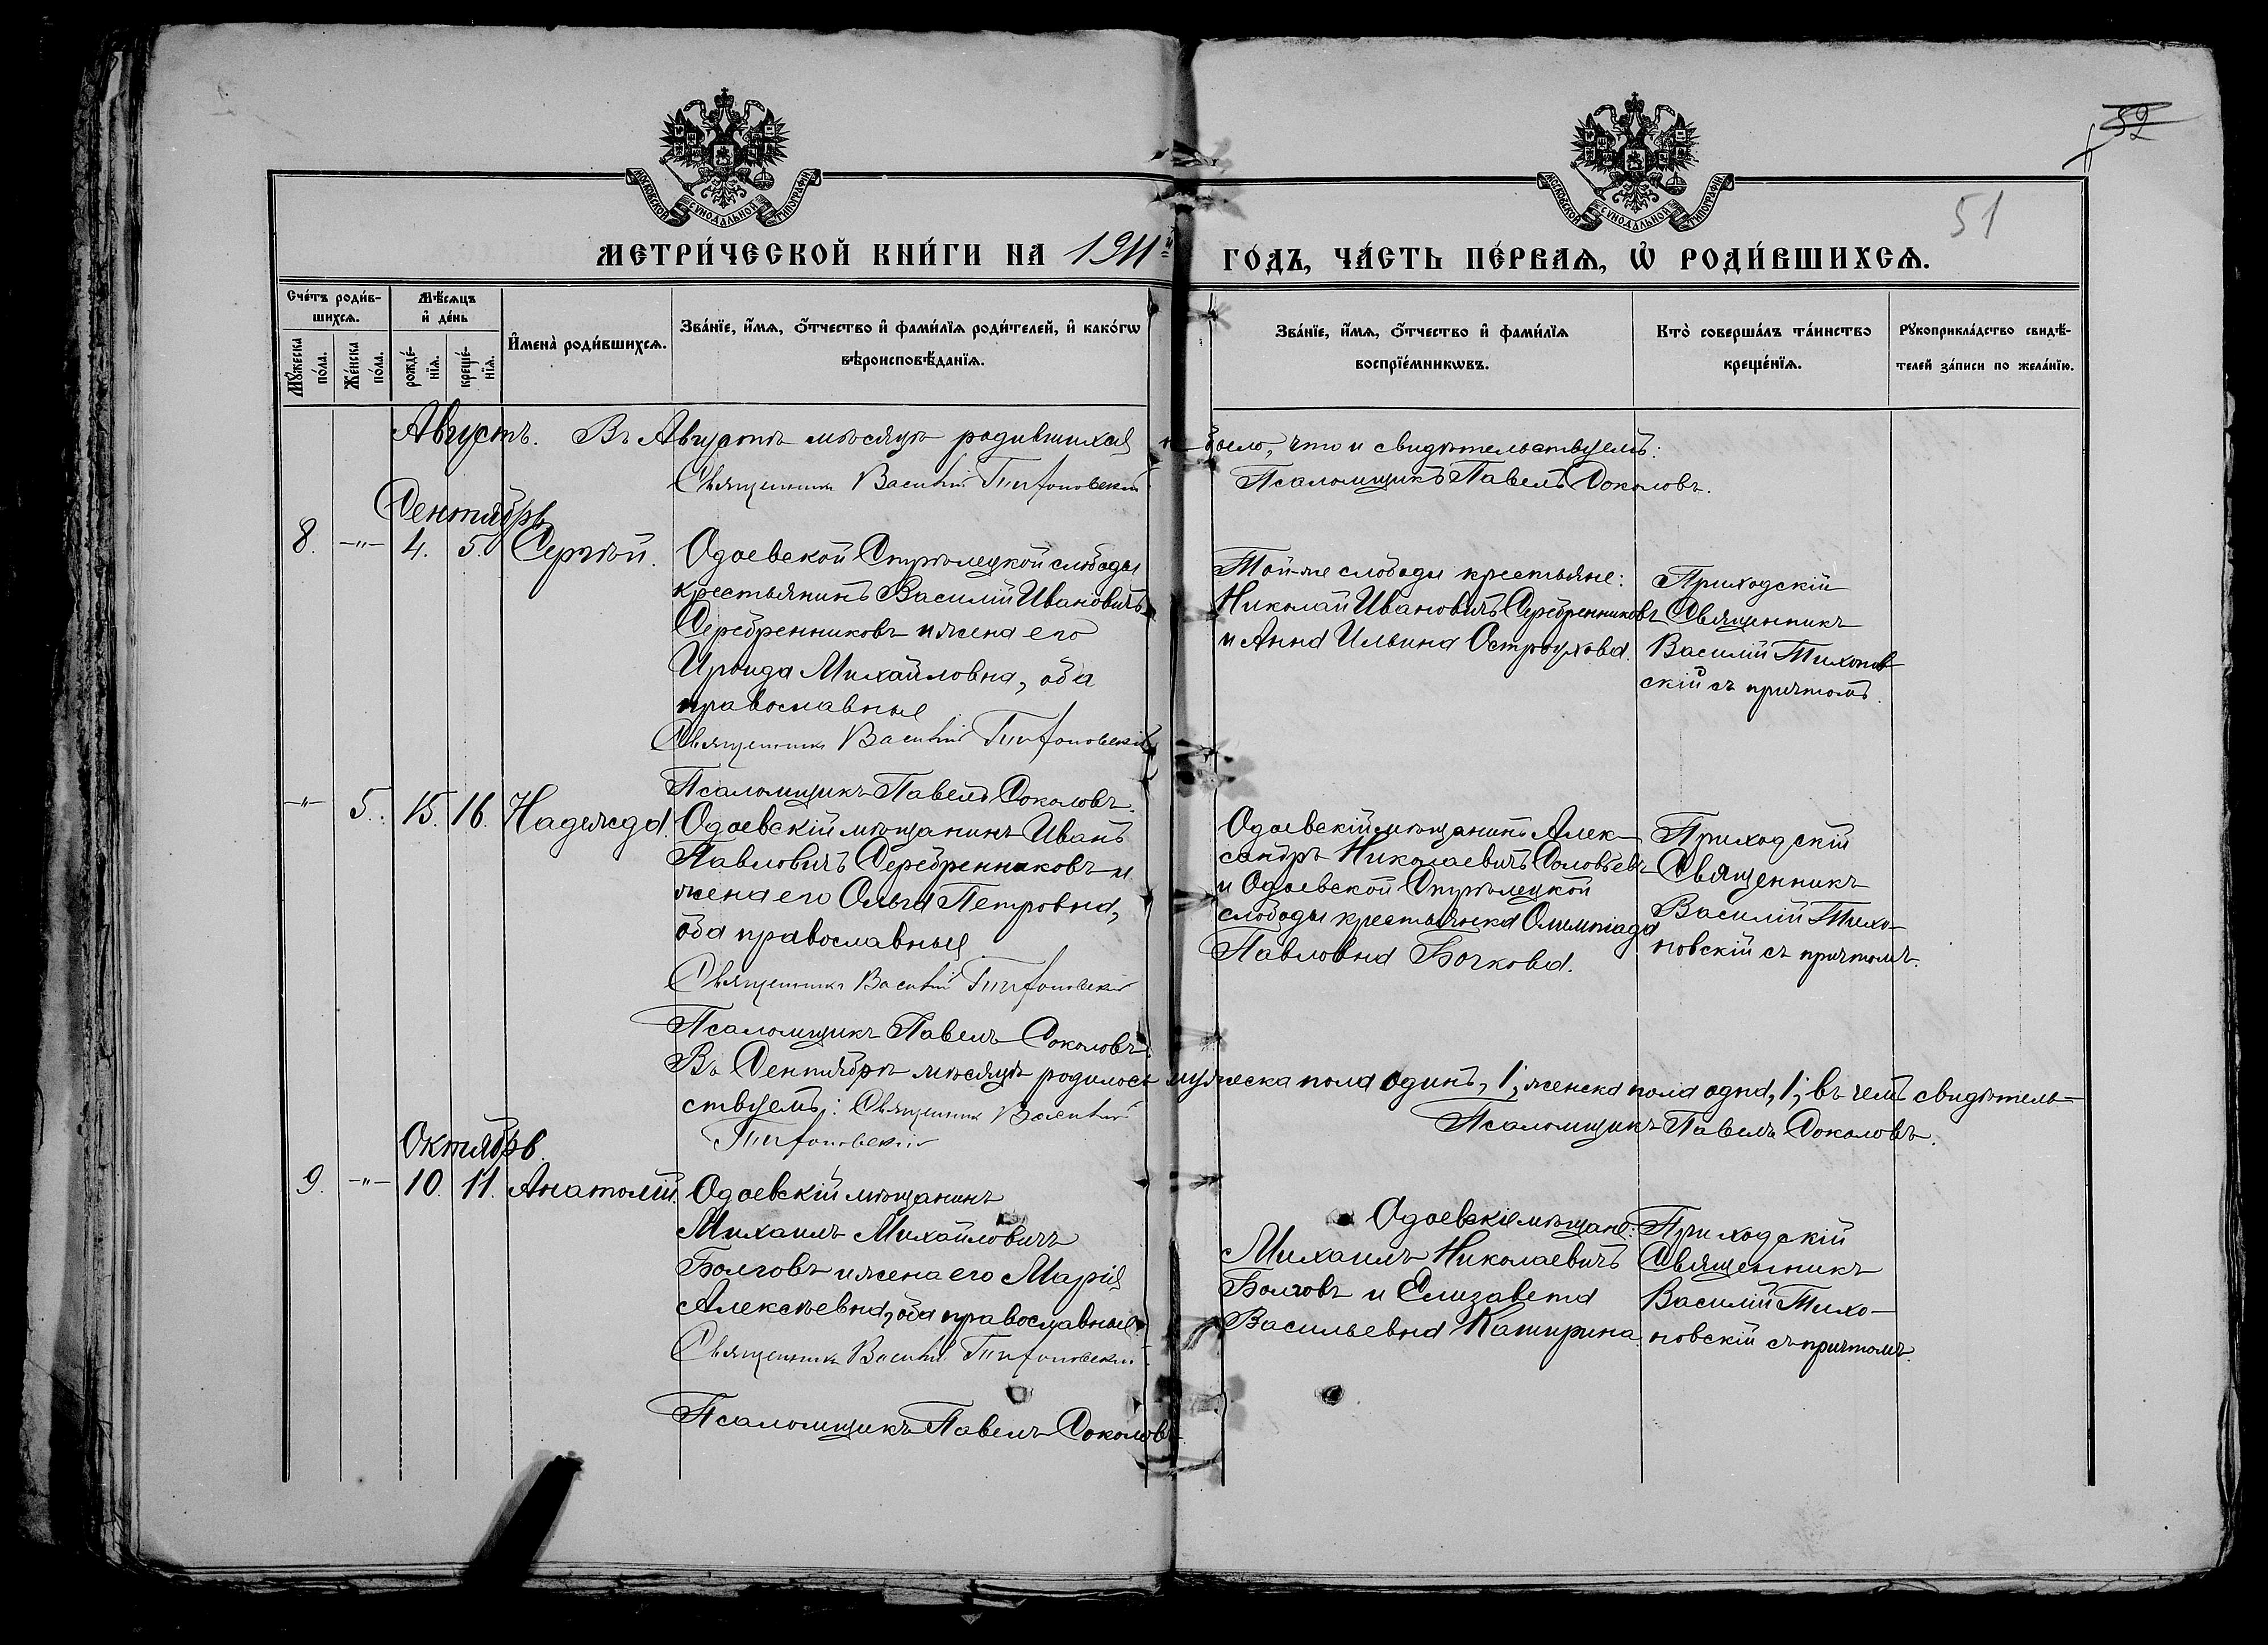 52
51
МОСКОВСКОЙ СѴНОДАЛЬНОЙ ТИПОГРАФІИ
МОСКОВСКОЙ СѴНОДАЛЬНОЙ ТИПОГРАФІИ
МЕТРИ́ЧЕСКОЙ КНИ́ГИ НА 1911й ГО́ДЪ, ЧА́СТЬ ПЕ́РВАѦ, Ѡ҆ РОДИ́ВШИХСѦ.
Сче́тъ роди́в-
шихсѧ.
Мꙋ́жеска по́ла.
Же́нска по́ла.
Мѣ́сѧцъ
и҆ де́нь
рожде́-
нїѧ.
креще́-
нїѧ.
И҆мена̀ роди́вшихсѧ.
Зва́нїе, и҆́мѧ, ѻ҆́тчество и҆ фами́лїѧ роди́телей, и҆ како́гѡ
вѣроисповѣ́данїѧ.
Зва́нїе, и҆́мѧ, ѻ҆́тчество и҆ фами́лїѧ
воспрїе́мникѡвъ.
Кто̀ соверша́лъ та́инство
креще́нїѧ.
Рꙋкоприкла́дство свидѣ́-
телей за́писи по жела́нїю.
Августъ. Въ Августѣ мѣсяцѣ родившихся не было, что и свидѣтельствуемъ:
Священникъ Василій Тихоновскій
Псаломщикъ Павелъ Соколовъ.
Сентябрь
8. —"— 4. 5. Сергѣй.
Одоевской Стрѣлецкой слободы
крестьянинъ Василій Ивановичъ
Серебренниковъ и жена его
Ироида Михайловна, оба
православные
Священникъ Василій Тихоновскій
Псаломщикъ Павелъ Соколовъ.
Той-же слободы крестьяне:
Николай Ивановичъ Серебренниковъ
и Анна Ильина Остроухова.
Приходскій
Священникъ
Василій Тихонов-
скій съ причтомъ.
—"— 5. 15. 16. Надежда.
Одоевскій мѣщанинъ Иванъ
Павловичъ Серебренниковъ и
жена его Ольга Петровна,
оба православные
Священникъ Василій Тихоновскій
Псаломщикъ Павелъ Соколовъ.
Одоевскій мѣщанинъ Алек-
сандръ Николаевичъ Соловьевъ
и Одоевской Стрѣлецкой
слободы крестьянка Олимпіада
Павловна Бочкова.
Приходскій
Священникъ
Василій Тихо-
новскій съ причтомъ.
Въ Сентябрѣ мѣсяцѣ родилось мужеска пола одинъ, 1; женска пола одна, 1; въ чемъ свидѣтель-
ствуемъ: Священникъ Василій
Тихоновскій
Псаломщикъ Павелъ Соколовъ.
Октябрь.
9. —"— 10. 11. Анатолій.
Одоевскій мѣщанинъ
Михаилъ Михайловичъ
Болговъ и жена его Марія
Алексѣевна, оба православные.
Священникъ Василій Тихоновскій
Псаломщикъ Павелъ Соколовъ.
Одоевскіе мѣщане:
Михаилъ Николаевичъ
Болговъ и Елизавета
Васильевна Каширина.
Приходскій
Священникъ
Василій Тихо-
новскій съ причтомъ.